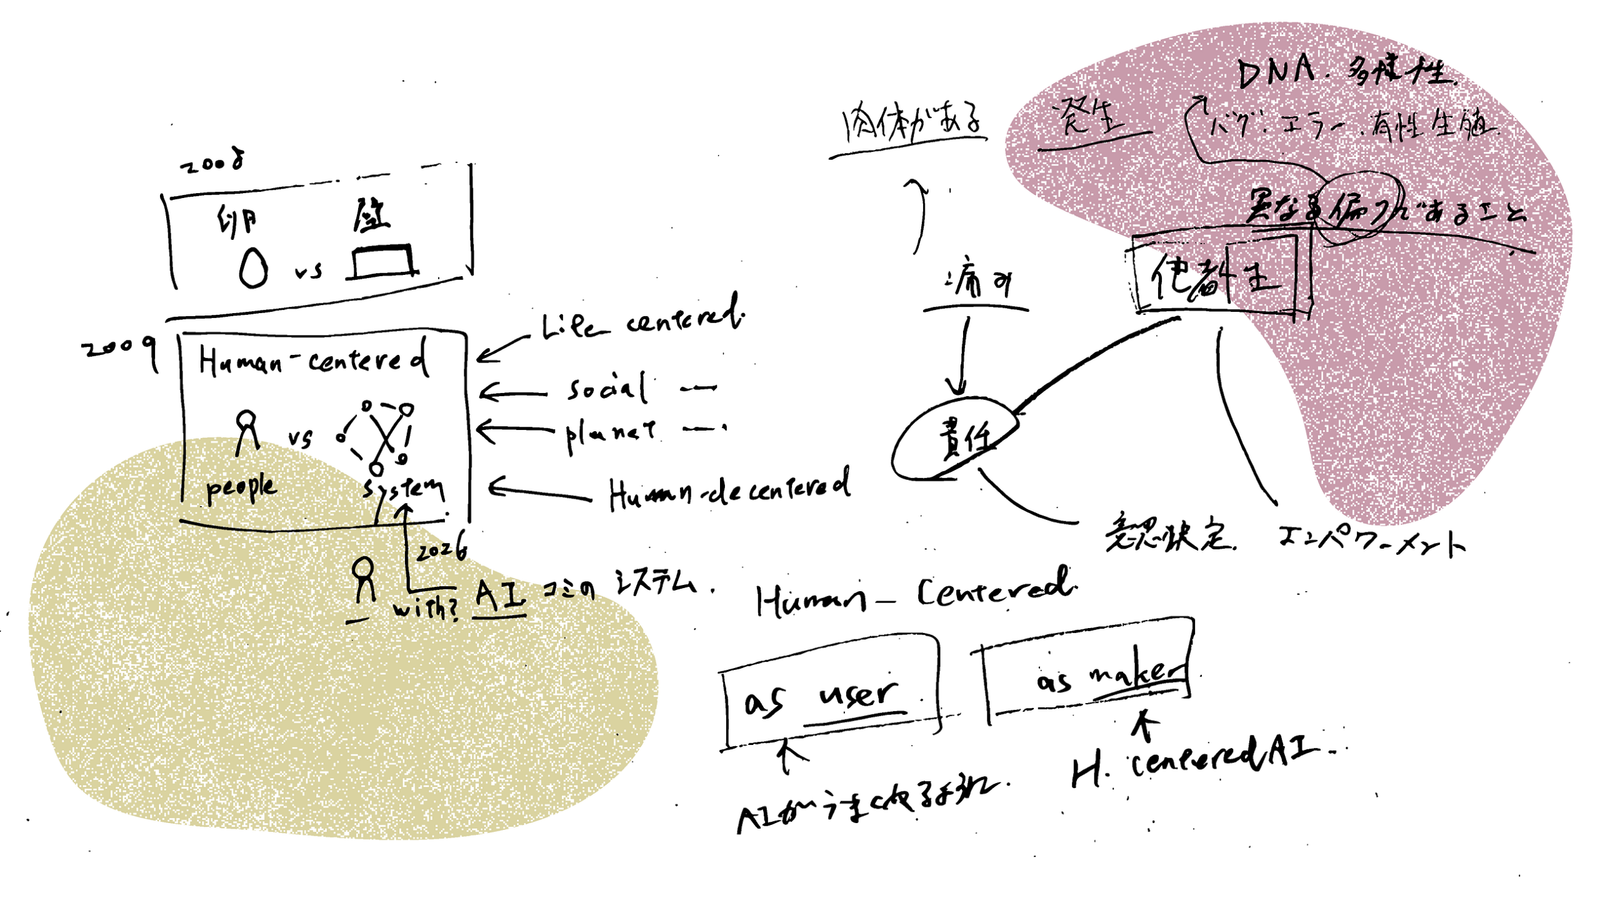 2008
卵 壁
vs
2009
Human-centered
vs
people
system
Life centered.
social —
planet —.
Human-decentered
2026
with? AI コミの システム.
肉体がある
発生
DNA. 多様性.
バグ・エラー・有性生殖.
異なる偏りであること
他者性
痛み
責任
意思決定.
エンパワーメント
Human-Centered.
as user
as maker
H. centered AI.